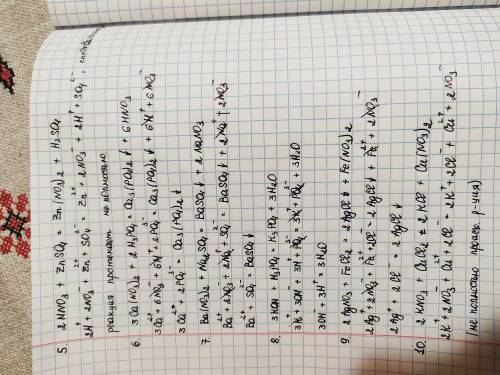 5. 2HNO3 + ZnSO4 = Zn(NO3)2 + H2SO4
2H⁺ + 2NO3⁻ Zn²⁺ + SO4²⁻ = Zn²⁺ + 2NO3⁻ + 2H⁺ + SO4²⁻,
реакция протекает не полностью
6. 3Ca(NO3)2 + 2H3PO4 = Ca3(PO4)2↓ + 6HNO3
3Ca²⁺ + 6NO3⁻ + 6H⁺ + 2PO4³⁻ = Ca3(PO4)2↓ + 6H⁺ + 6NO3⁻
3Ca²⁺ + 2PO4³⁻ = Ca3(PO4)2↓
7. Ba(NO3)2 + Na2SO4 = BaSO4↓ + 2NaNO3
Ba²⁺ + 2NO3⁻ + 2Na⁺ + SO4²⁻ = BaSO4↓ + 2Na⁺ + 2NO3⁻
Ba²⁺ SO4²⁻ = BaSO4↓
8. 3KOH + H3PO4 = K3PO4 + 3H2O
3K⁺ + 3OH⁻ + 3H⁺ + PO4³⁻ = 3K⁺ + PO4³⁻ + 3H2O
3OH + 3H⁺ = 3H2O
9. 2AgNO3 + FeCl2 = 2AgCl↓ + Fe(NO3)2
2Ag⁺ + 2NO3⁻ + Fe²⁺ + 2Cl⁻ = 2AgCl↓ + Fe²⁺ + 2NO3⁻
2Ag⁺ + 2Cl⁻ = 2AgCl↓
10. 2KNO3 + CuCl2 ≠ 2KCl + Cu(NO3)2
2K⁺ + 2NO3⁻ + Cu²⁺ + 2Cl⁻ 2K⁺ + 2Cl⁻ + Cu²⁺ + 2NO3⁻
(не полностью прошла р-ция)